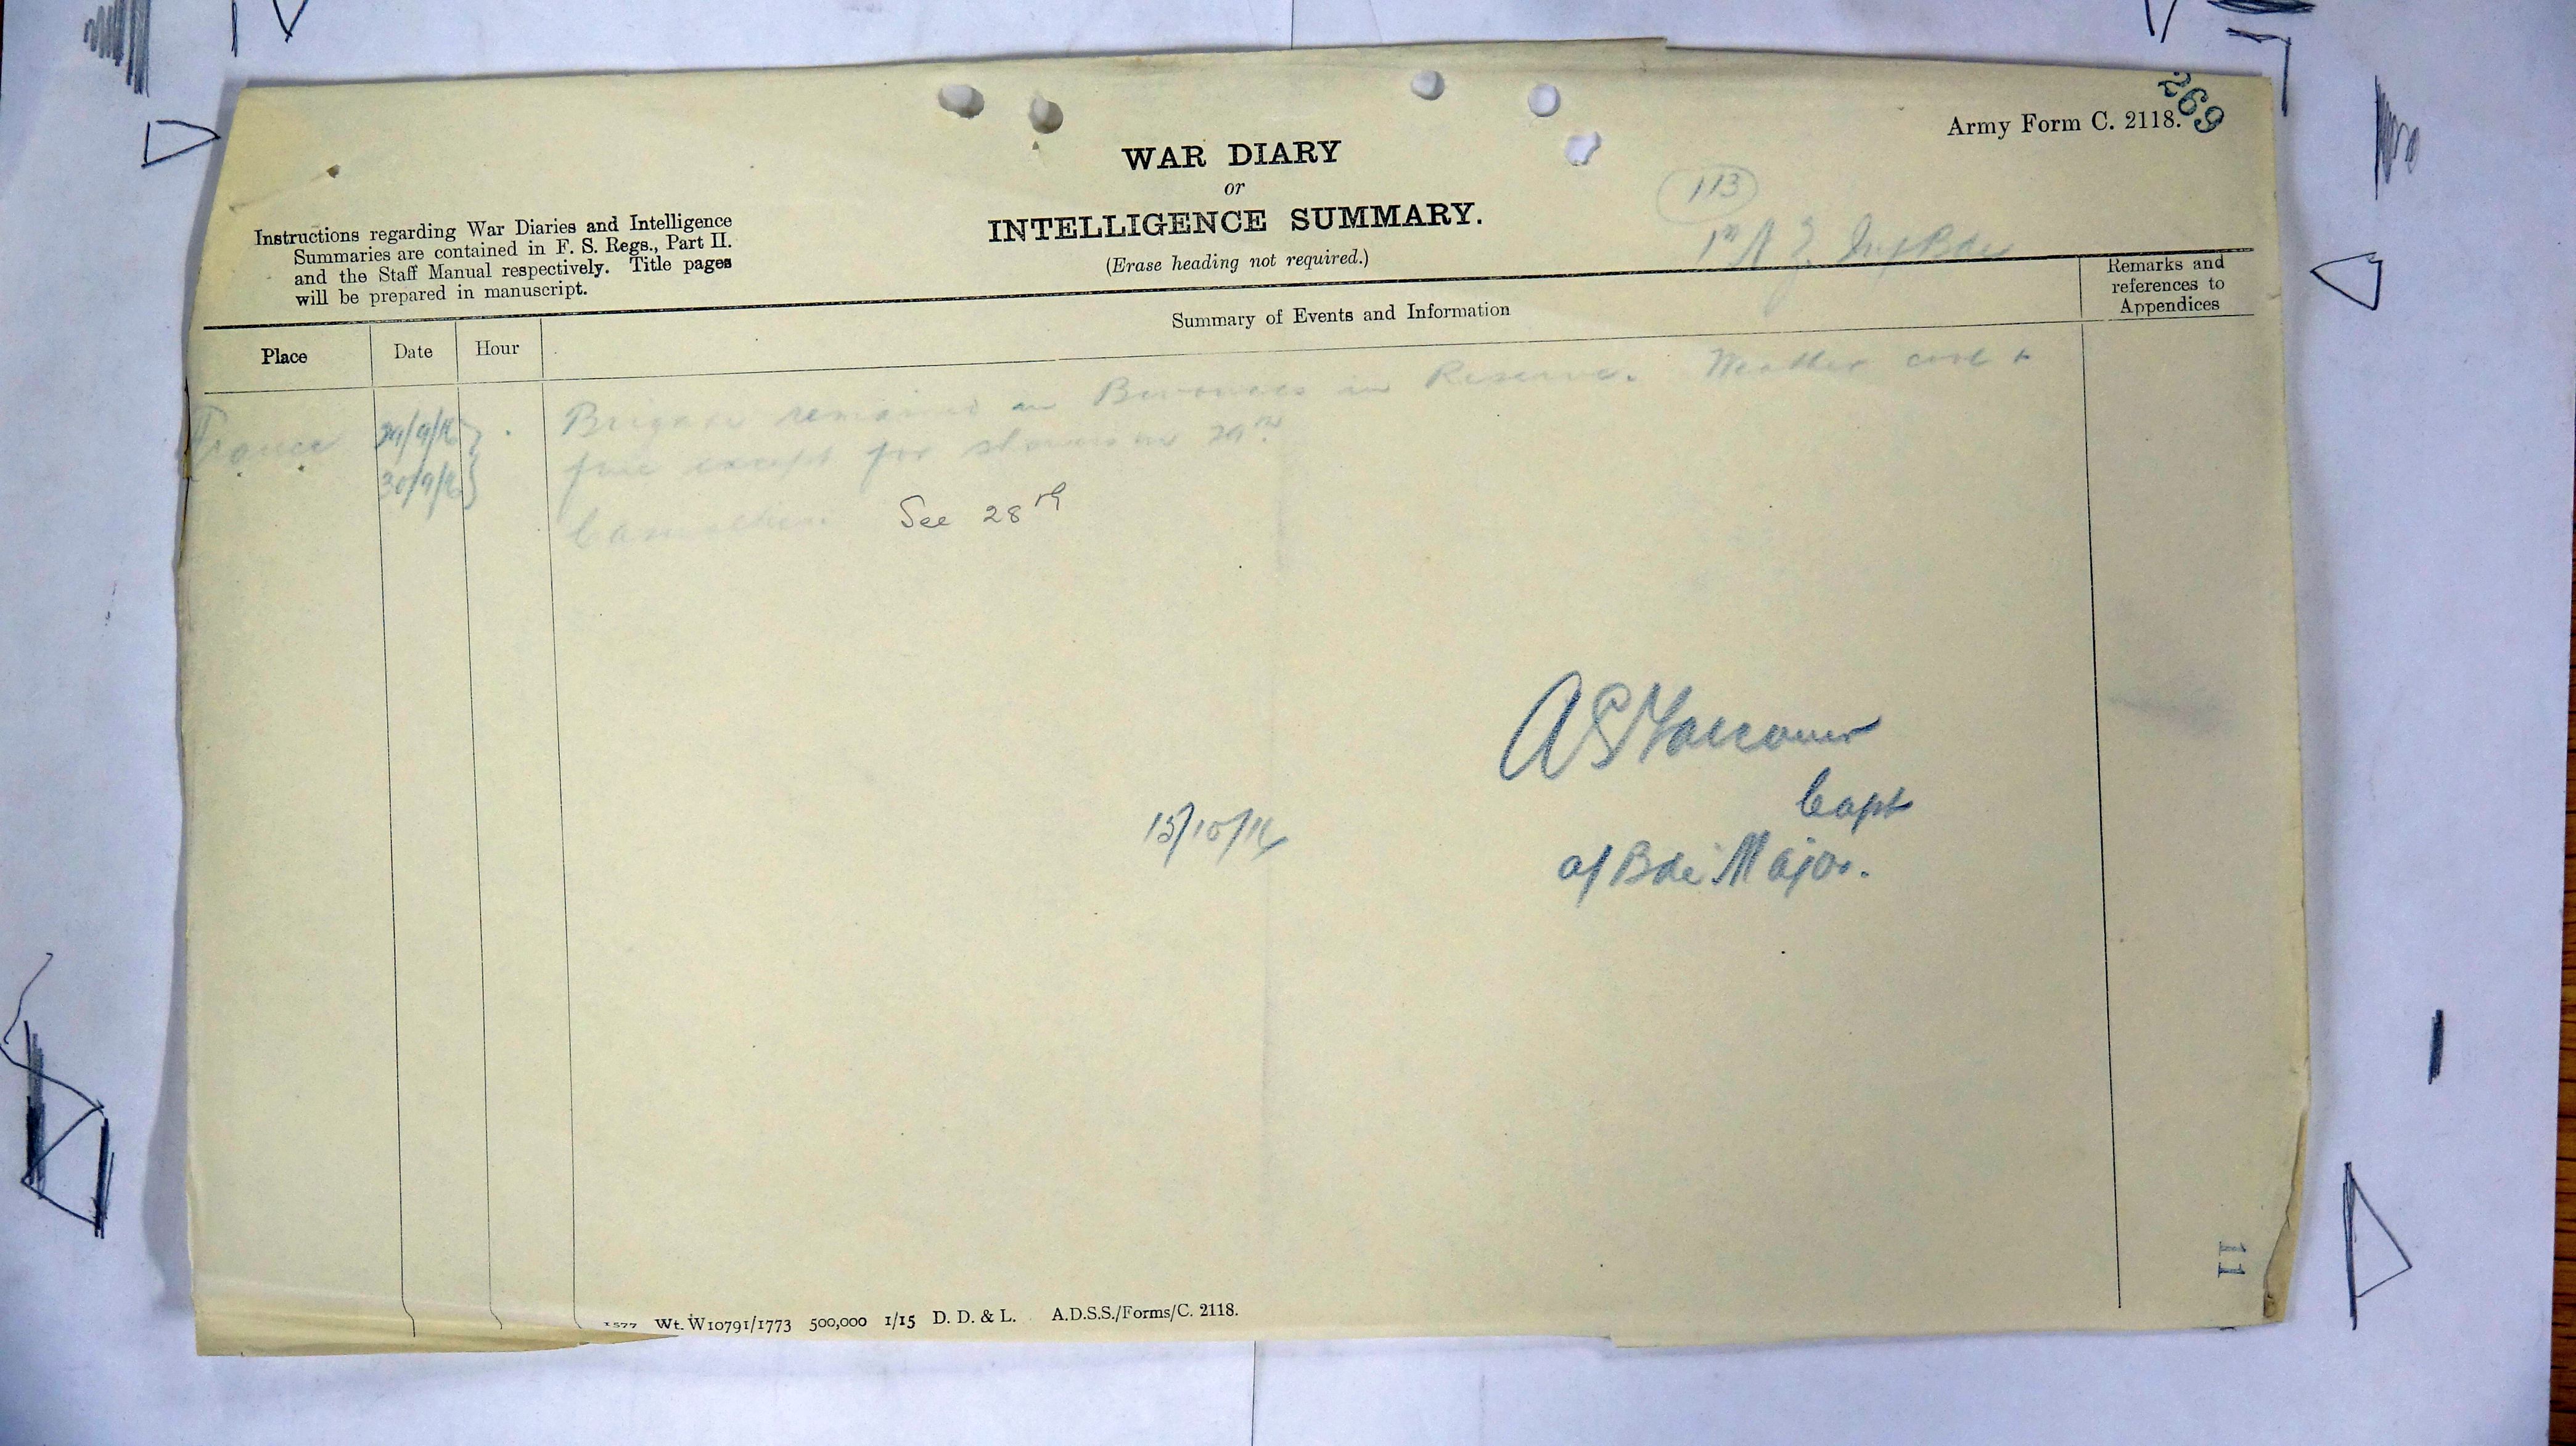 269
Army Form C. 2118.
WAR DIARY
or
INTELLIGENCE SUMMARY.
(Erase heading not required.)
113
1st N Z. Inf Bde
Instructions regarding War Diaries and Intelligence
Summaries are contained in F. S. Regs., Part II.
and the Staff Manual respectively. Title pages
will be prepared in manuscript.
Place
Date
Hour
Summary of Events and Information
Remarks and
references to
Appendices
France
29/9/16
30/9/16
Brigade remained in Bivouacs in Reserve. Weather cool &
fine except for showers on 29th.
Casualties. See 28th
A S
Capt
a/ Bde Major.
15/10/16
11
1577 Wt. W10791/1773 500,000 1/15 D. D. & L. A.D.S.S./Forms/C. 2118.